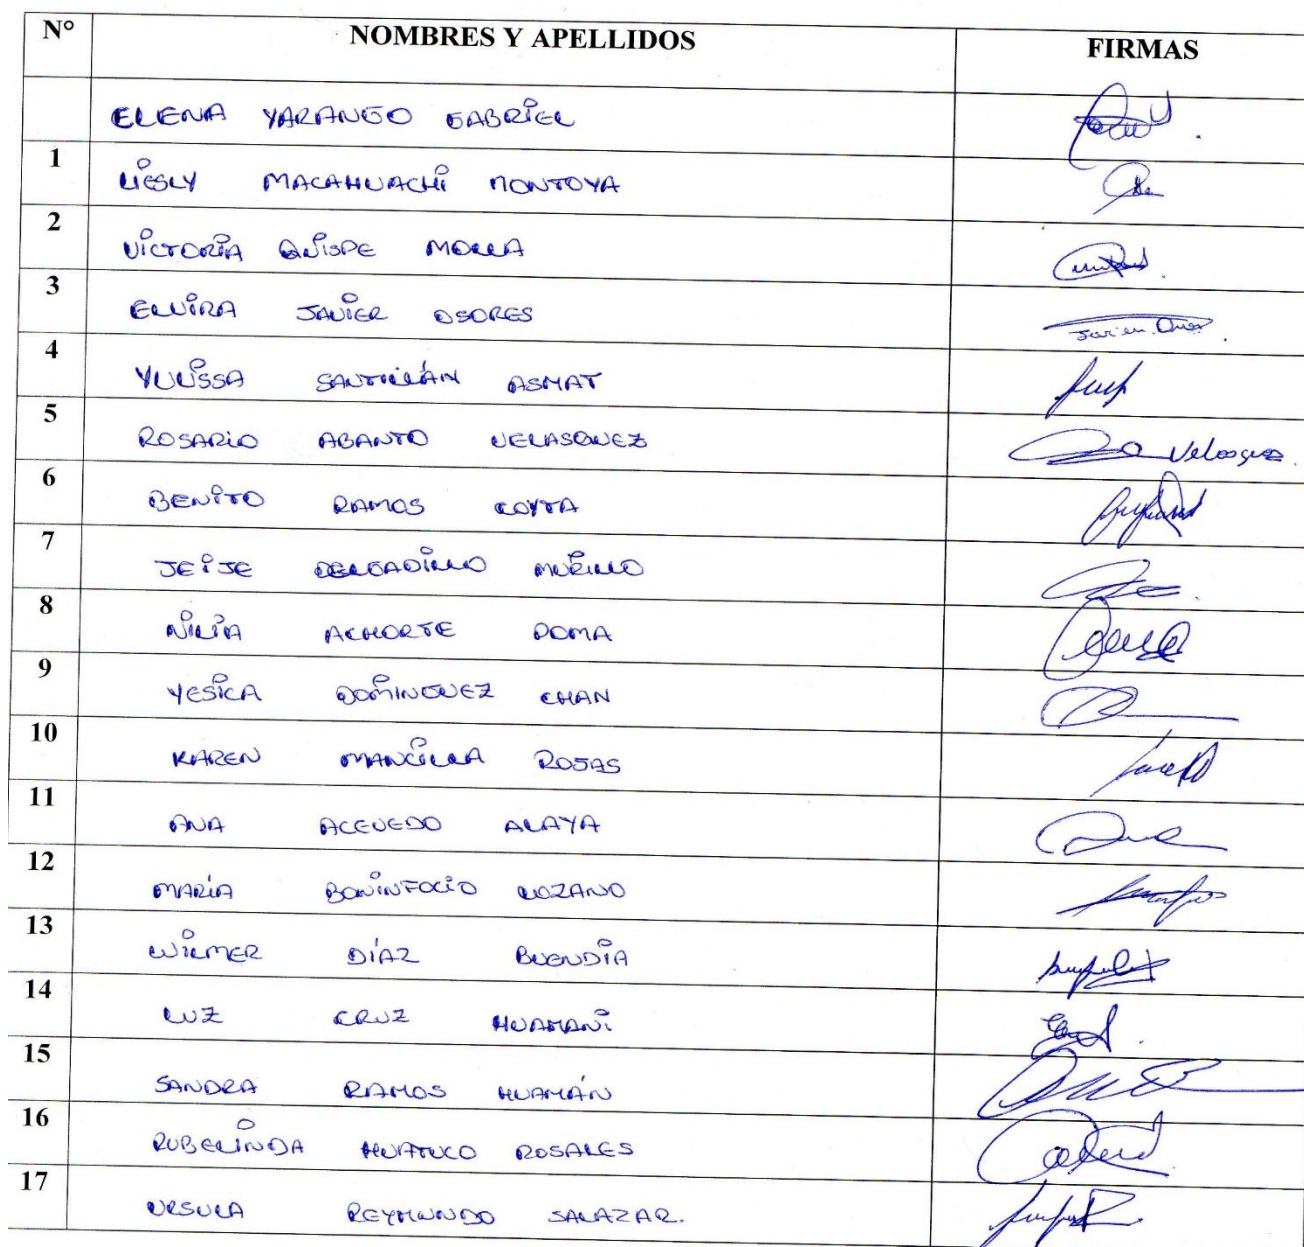 N° NOMBRES Y APELLIDOS FIRMAS
ELENA YARANGO GABRIEL
1 LIESLY MACAHUACHI MONTOYA
2 VICTORIA QUISPE MOLLA
3 ELVIRA JAVIER OSORES
4 YULISSA SANTILLÁN ASMAT
5 ROSARIO ABANTO VELASQUEZ Velasquez
6 BENITO RAMOS COYTA
7 JEIJE DELGADILLO MURILLO
8 NILIA ACHORTE POMA
9 YESICA DOMINGUEZ CHAN
10 KAREN MANCILLA ROJAS
11 ANA ACEVEDO ALAYA
12 MARÍA BONINFOCIO LOZANO
13 WILMER DÍAZ BUENDIA
14 LUZ CRUZ HUAMANI
15 SANDRA RAMOS HUAMÁN
16 RUBELINDA HUATUCO ROSALES
17 URSULA REYMUNDO SALAZAR.